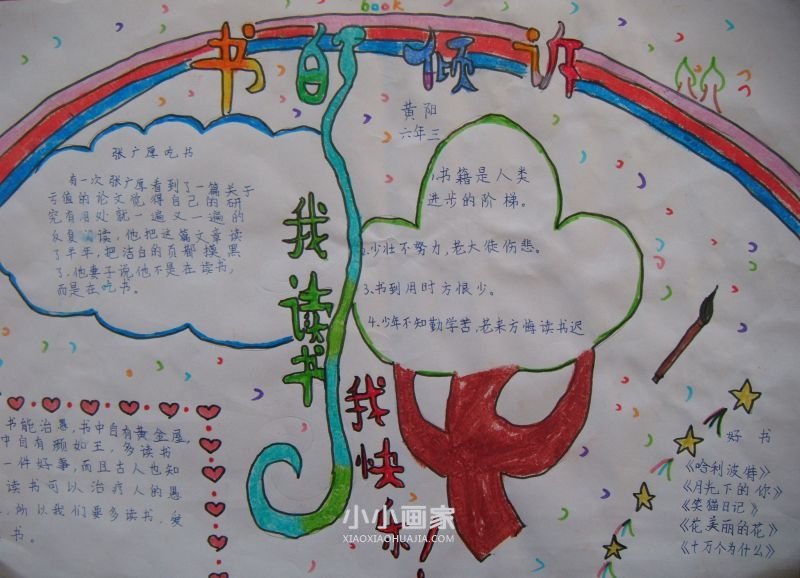 book
书的倾诉
黄阳
六年三
张广厚吃书
有一次张广厚看到了一篇关于
亏值的论文觉得自己的研
究有用处就一遍又一遍的
反复阅读,他把这篇文章读
了半年,把洁白的页都摸黑
了,他妻子说他不是在读书,
而是在吃书。
我读书
我快乐!
1.书籍是人类
进步的阶梯。
2.少壮不努力,老大徒伤悲。
3.书到用时方恨少。
4.少年不知勤学苦,老来方悔读书迟
书能治愚,书中自有黄金屋,
中自有颜如王,多读书
一件好事,而且古人也知
读书可以治疗人的愚
所以我们要多读书,爱
书。
好书
《哈利波特》
《月光下的你》
《笑猫日记》
《花美丽的花》
《十万个为什么》
小小画家
XIAOXIAOHUAJIA.COM